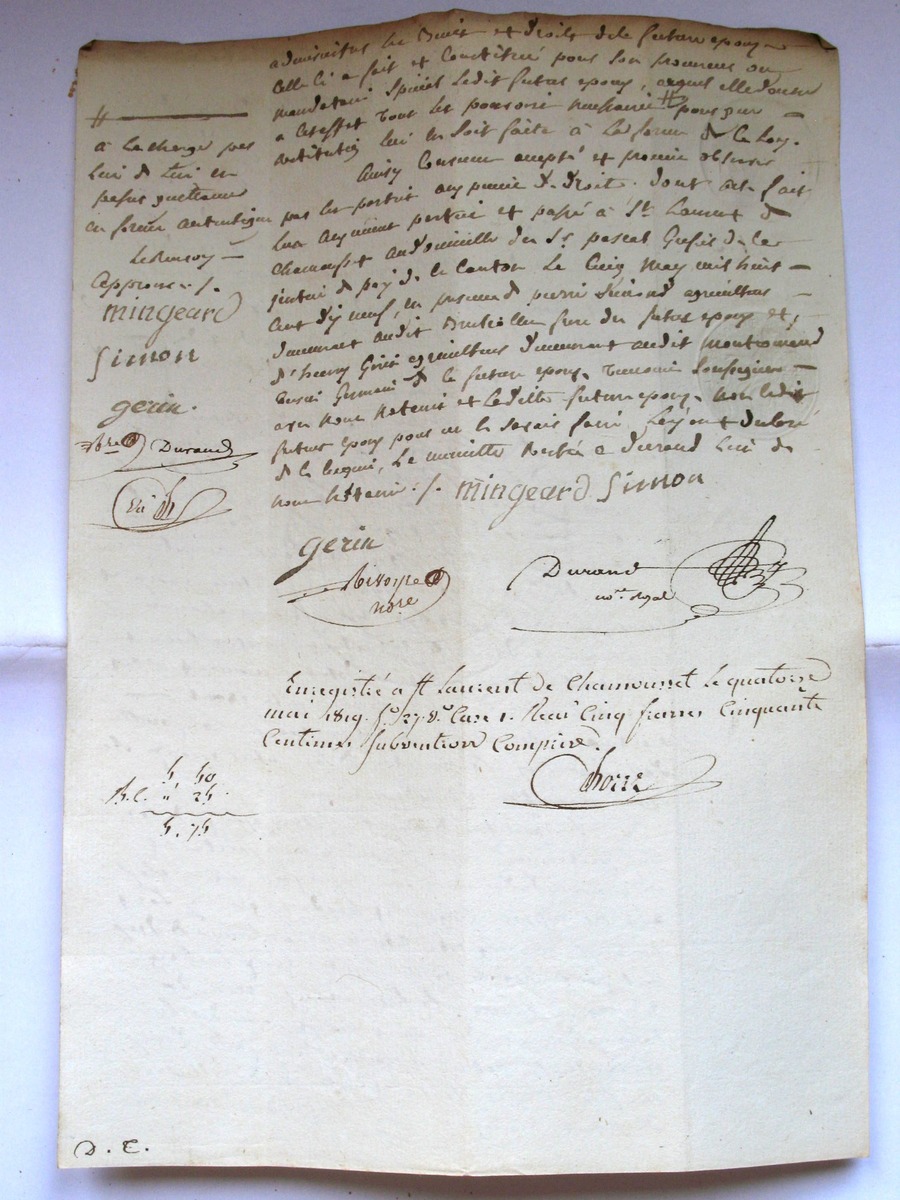 administrer les Biens et droits de la future epouse
Celle ci a fait et Constitué pour son procureur ou
mandataire Spécial Ledit futur epoux, auquel elle donne
a cet effet tout les pouvoirs # pour que
lui en soit faite à la forme de la Loy.
Ainsy Convenu accepté et promis observer
par les parties aux peines de droit. dont acte fait
Lu aux parties et passé à St. Laurent de
Chamousset au Domicille du Sr. pascal de la
justice de paix de le Canton Le Cinq May mil huit
Cent dix neuf, en présence de pierre Simond agriculteur
demeurant audit Brullioles frere du futur epoux et,
d'henry Gerin agriculteur demeurant audit Montromand
Cousin Germain de la future epouse. Temoins Soussignés
avec nous Notaire et Ladite future epouse. Non Ledit
futur epoux pour ne le Savoir faire, Leyant déclaré
de ce requis, La minutte Restée a Durand L'un de
nous Notaires ./.
mingeard Simon
gerin
nore
Durand
nore. Royal
#
à La charge par
Lui de
en forme autentique
Le Renvoy
Approuvé ./.
mingeard
Simon
gerin.
Durand
Enregistré a St Laurent de Chamousset Le quatorze
mai 1819. fo. 27. vo. Case 1. Recu Cinq francs Cinquante
Centimes Subvention Comprise.
5 50
" 25.
5. 75
D. E.